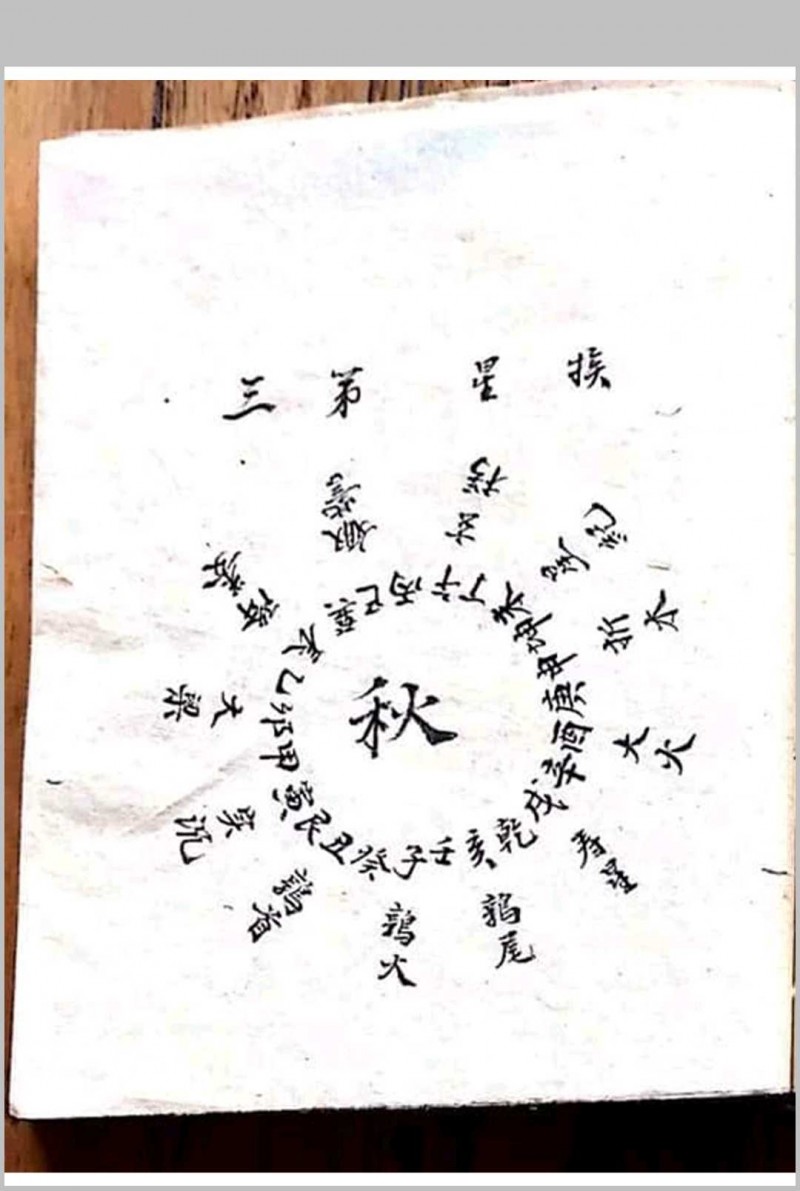 挨星第三
秋
午丁未坤申庚酉辛戌乾亥壬子癸丑艮寅甲卯乙辰巽巳丙
玄枵
星紀
折木
大火
寿星
鶉尾
鶉火
鶉首
実沉
大梁
娵訾